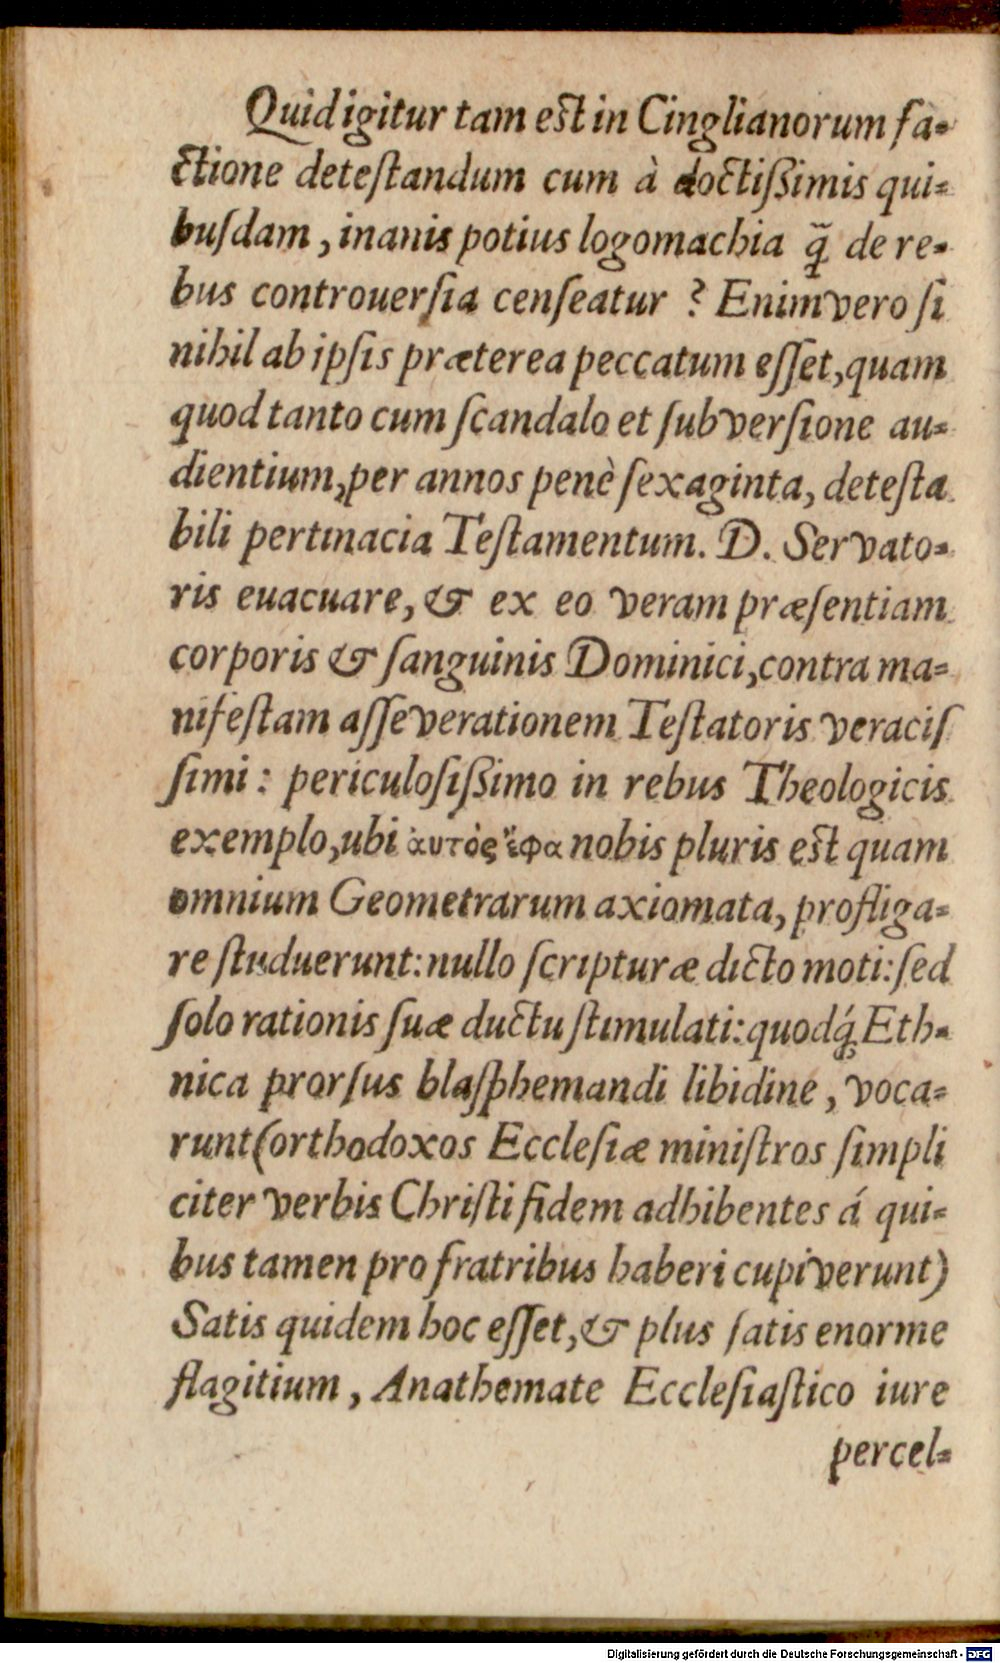 Quid igitur tam est in Cinglianorum fa-
ctione detestandum cum à doctißimis qui-
busdam, inanis potius logomachia q̃ de re-
bus controuersia censeatur ? Enimvero si
nihil ab ipsis præterea peccatum esset, quam
quod tanto cum scandalo et subversione au-
dientium, per annos penè sexaginta, detesta
bili pertinacia Testamentum. D. Servato-
ris euacuare, & ex eo veram præsentiam
corporis & sanguinis Dominici, contra ma-
nifestam asseverationem Testatoris veracis
simi : periculosißimo in rebus Theologicis
exemplo, ubi ἀυτὸς ἔφα nobis pluris est quam
omnium Geometrarum axiomata, profliga-
re studuerunt: nullo scripturæ dicto moti: sed
solo rationis suæ ductu stimulati: quodq́; Eth-
nica prorsus blasphemandi libidine, voca-
runt (orthodoxos Ecclesiæ ministros simpli
citer verbis Christi fidem adhibentes á qui-
bus tamen pro fratribus haberi cupiverunt)
Satis quidem hoc esset, & plus satis enorme
flagitium, Anathemate Ecclesiastico iure
percel-
Digitalisierung gefördert durch die Deutsche Forschungsgemeinschaft - DFG